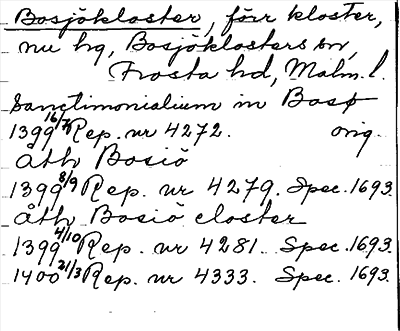 Bosjökloster, förr kloster,
nu hg, Bosjöklosters sn,
Frosta hd, Malm. l.
Sanctimonialium in Bosø
1399 16/7 Rep. nr 4272. orig.
áth Bosiö
1399 8/9 Rep. nr 4279. Spec. 1693.
áth Bosiö closter
1399 4/10 Rep. nr 4281. Spec. 1693.
1400 21/3 Rep. nr 4333. Spec. 1693.